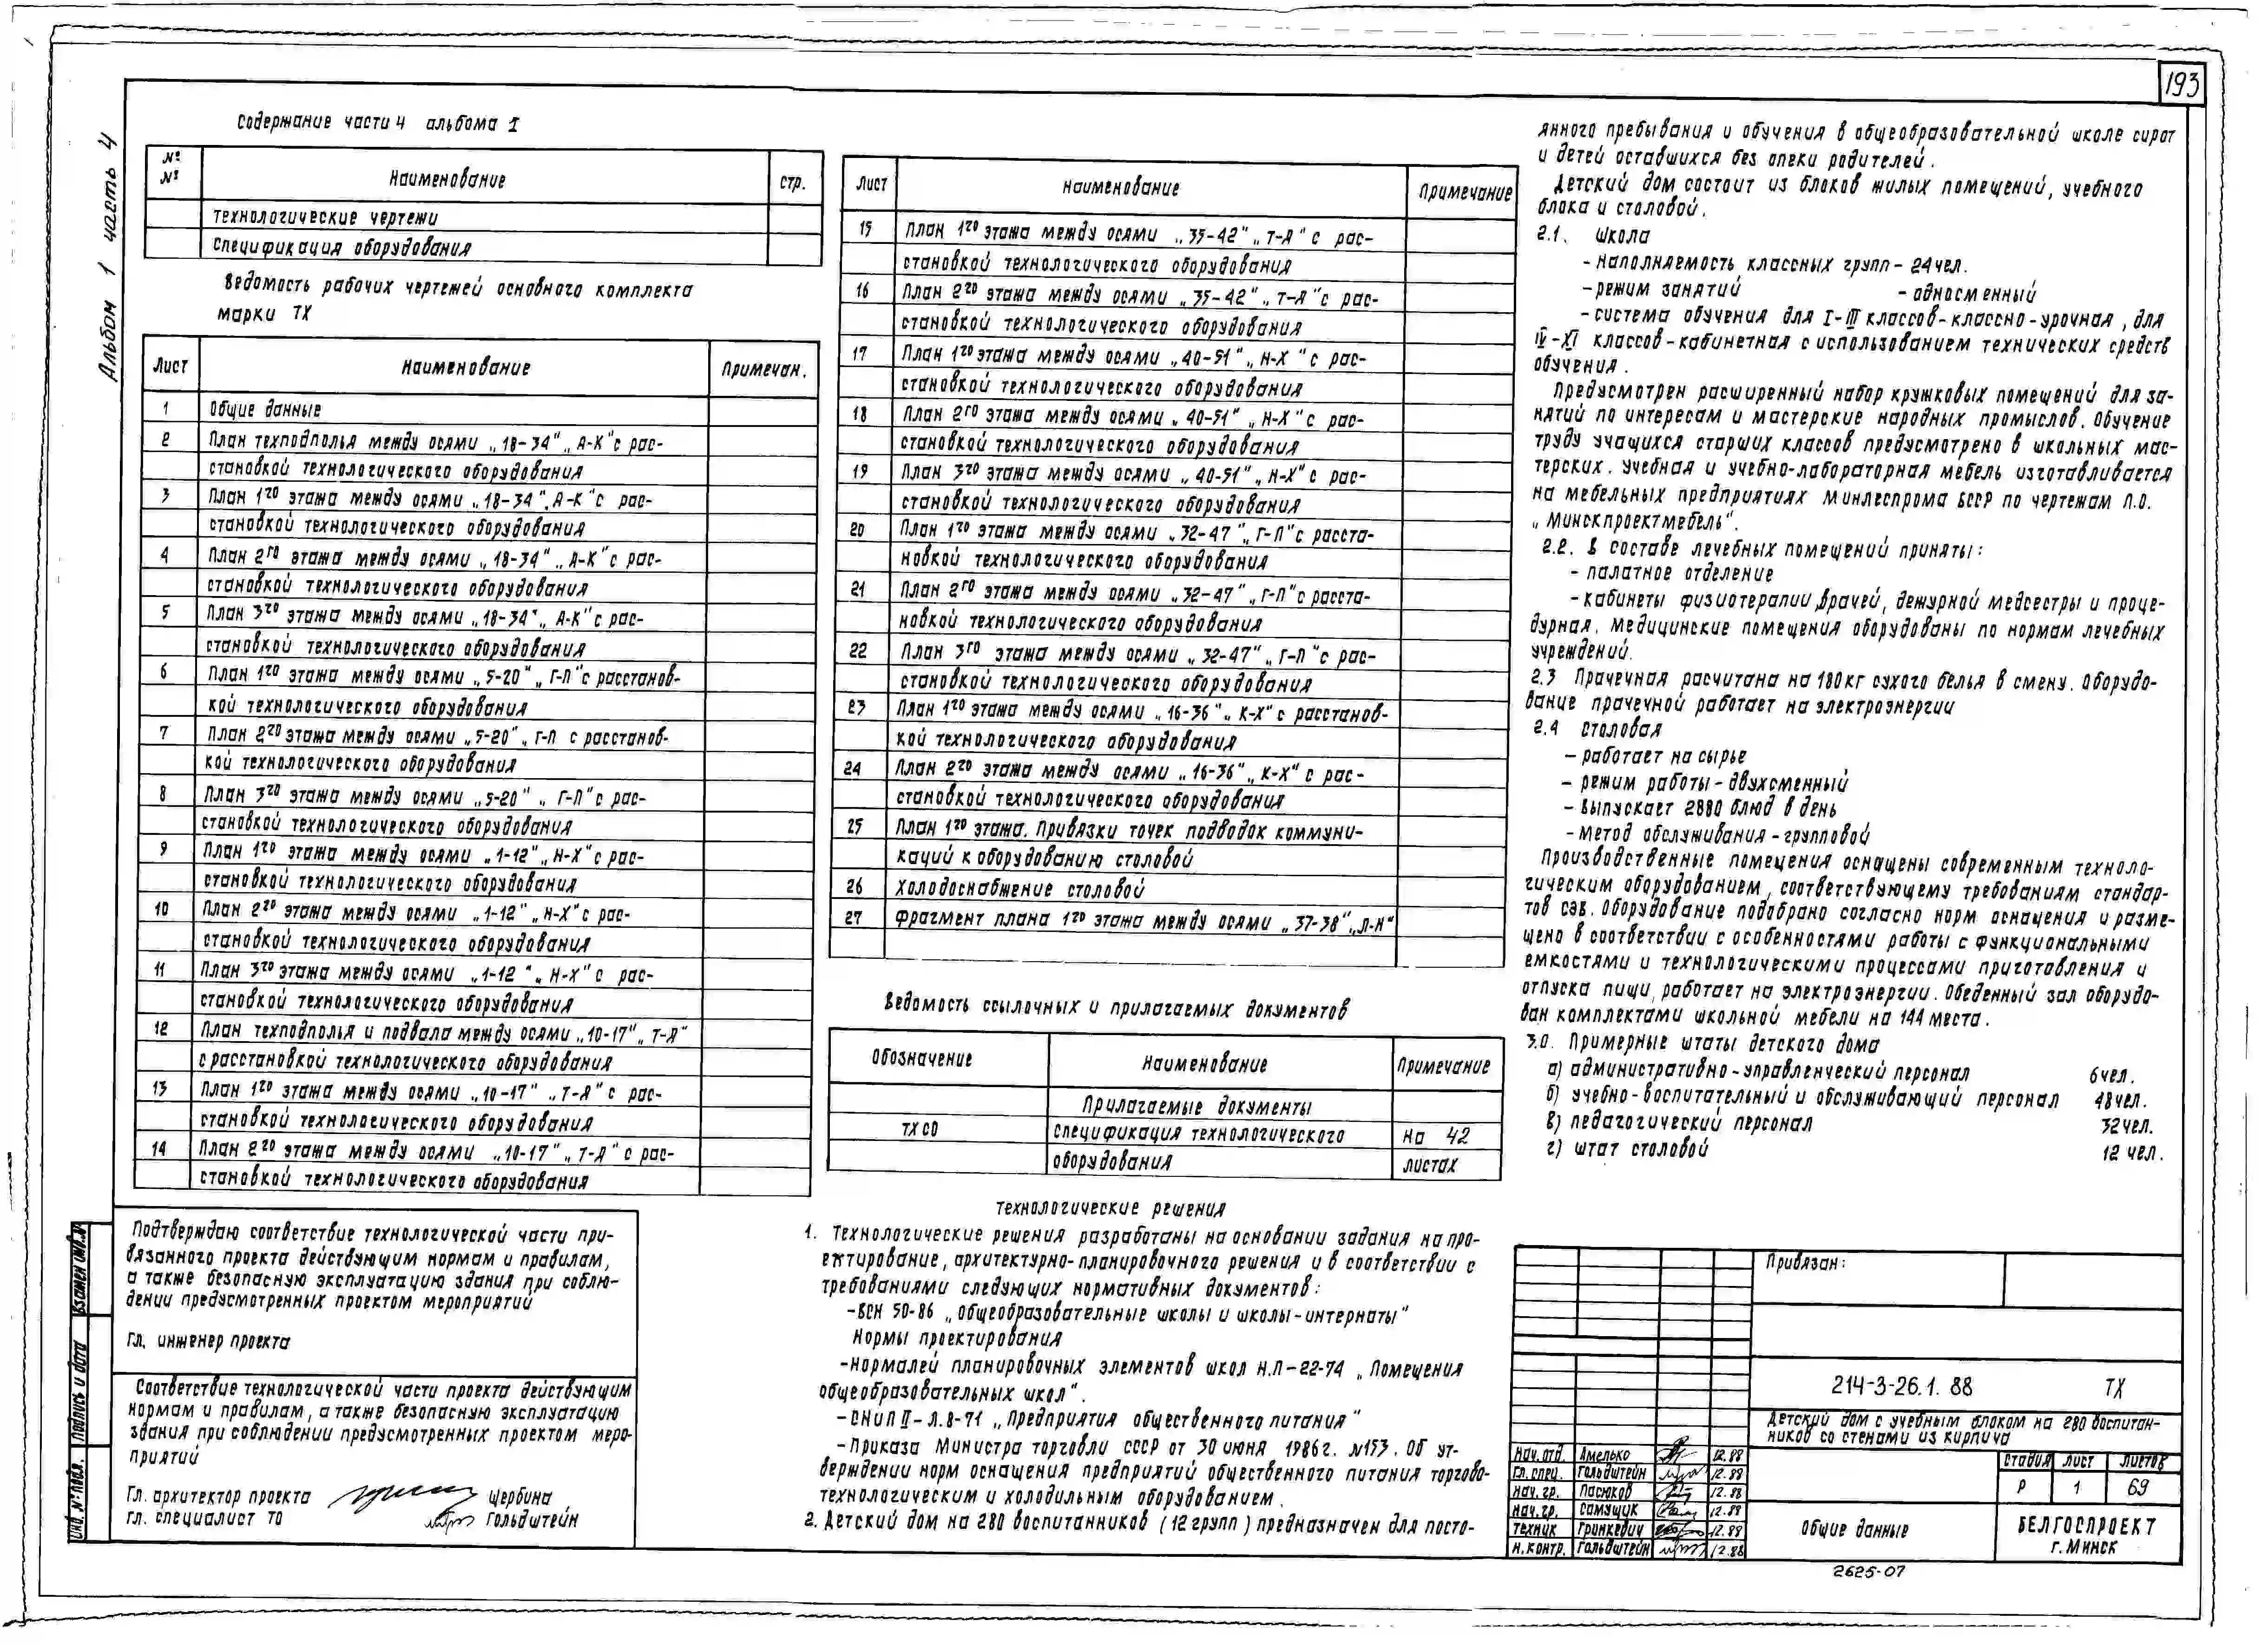 193
Альбом 1 часть 4
Содержание части 4 альбома I
№№ Наименование стр.
Технологические чертежи
Спецификация оборудования
Ведомость рабочих чертежей основного комплекта
марки ТХ
Лист Наименование Примечан.
1 Общие данные
2 План техподполья между осями „18-34" „А-К" с рас-
становкой технологического оборудования
3 План 1го этажа между осями „18-34", А-К" с рас-
становкой технологического оборудования
4 План 2го этажа между осями „18-34" „А-К" с рас-
становкой технологического оборудования
5 План 3го этажа между осями „18-34" „А-К" с рас-
становкой технологического оборудования
6 План 1го этажа между осями „5-20" „Г-П" с расстанов-
кой технологического оборудования
7 План 2го этажа между осями „5-20" „Г-П с расстанов-
кой технологического оборудования
8 План 3го этажа между осями „5-20" „Г-П" с рас-
становкой технологического оборудования
9 План 1го этажа между осями „1-12" „Н-Х" с рас-
становкой технологического оборудования
10 План 2го этажа между осями „1-12" „Н-Х" с рас-
становкой технологического оборудования
11 План 3го этажа между осями „1-12" „Н-Х" с рас-
становкой технологического оборудования
12 План техподполья и подвала между осями „10-17" „Т-Я"
с расстановкой технологического оборудования
13 План 1го этажа между осями „10-17" „Т-Я" с рас-
становкой технологического оборудования
14 План 2го этажа между осями „10-17" „Т-Я" с рас-
становкой технологического оборудования
Подтверждаю соответствие технологической части при-
вязанного проекта действующим нормам и правилам,
а также безопасную эксплуатацию здания при соблю-
дении предусмотренных проектом мероприятий
Гл. инженер проекта
Соответствие технологической части проекта действующим
нормам и правилам, а также безопасную эксплуатацию
здания при соблюдении предусмотренных проектом меро-
приятий
Гл. архитектор проекта Щербина
Гл. специалист ТО Гольдштейн
Взамен инв.№
Подпись и дата
Инв. № подл.
Лист Наименование Примечание
15 План 1го этажа между осями „35-42" „Т-Я" с рас-
становкой технологического оборудования
16 План 2го этажа между осями „35-42" „Т-Я" с рас-
становкой технологического оборудования
17 План 1го этажа между осями „40-51" „Н-Х" с рас-
становкой технологического оборудования
18 План 2го этажа между осями „40-51" „Н-Х" с рас-
становкой технологического оборудования
19 План 3го этажа между осями „40-51" „Н-Х" с рас-
становкой технологического оборудования
20 План 1го этажа между осями „32-47" „Г-П" с расста-
новкой технологического оборудования
21 План 2го этажа между осями „32-47" „Г-П" с расста-
новкой технологического оборудования
22 План 3го этажа между осями „32-47" „Г-П" с рас-
становкой технологического оборудования
23 План 1го этажа между осями „16-36" „К-Х" с расстанов-
кой технологического оборудования
24 План 2го этажа между осями „16-36" „К-Х" с рас-
становкой технологического оборудования
25 План 1го этажа. Привязки точек подводок коммуни-
каций к оборудованию столовой
26 Холодоснабжение столовой
27 Фрагмент плана 1го этажа между осями „37-38" „Л-Н"
Ведомость ссылочных и прилагаемых документов
Обозначение Наименование Примечание
Прилагаемые документы
ТХ СО Спецификация технологического на 42
оборудования листах
Технологические решения
1. Технологические решения разработаны на основании задания на про-
ектирование, архитектурно-планировочного решения и в соответствии с
требованиями следующих нормативных документов:
-ВСН 50-86 „Общеобразовательные школы и школы-интернаты"
Нормы проектирования
-Нормалей планировочных элементов школ Н.П-22-74 „Помещения
общеобразовательных школ".
-СНиП II-Л.8-71 „Предприятия общественного питания"
-Приказа Министра торговли СССР от 30 июня 1986г. №153. Об ут-
верждении норм оснащения предприятий общественного питания торгово-
технологическим и холодильным оборудованием.
2. Детский дом на 280 воспитанников (12 групп) предназначен для посто-
янного пребывания и обучения в общеобразовательной школе сирот
и детей оставшихся без опеки родителей.
Детский дом состоит из блоков жилых помещений, учебного
блока и столовой.
2.1. Школа
- наполняемость классных групп - 24 чел.
- режим занятий - односменный
- система обучения для I-III классов-классно-урочная, для
IV-XI классов-кабинетная с использованием технических средств
обучения.
Предусмотрен расширенный набор кружковых помещений для за-
нятий по интересам и мастерские народных промыслов. Обучение
труду учащихся старших классов предусмотрено в школьных мас-
терских. Учебная и учебно-лабораторная мебель изготавливается
на мебельных предприятиях Минлеспрома БССР по чертежам П.О.
„Минскпроектмебель".
2.2. В составе лечебных помещений приняты:
- палатное отделение
- кабинеты физиотерапии, врачей, дежурной медсестры и проце-
дурная. Медицинские помещения оборудованы по нормам лечебных
учреждений.
2.3 Прачечная расчитана на 180кг сухого белья в смену. Оборудо-
вание прачечной работает на электроэнергии
2.4 Столовая
- работает на сырье
- режим работы - двухсменный
- выпускает 2880 блюд в день
- метод обслуживания - групповой
Производственные помещения оснащены современным техноло-
гическим оборудованием, соответствующему требованиям стандар-
тов СЭВ. Оборудование подобрано согласно норм оснащения и разме-
щено в соответствии с особенностями работы с функциональными
емкостями и технологическими процессами приготовления и
отпуска пищи, работает на электроэнергии. Обеденный зал оборудо-
ван комплектами школьной мебели на 144 места.
3.0. Примерные штаты детского дома
а) административно-управленческий персонал 6 чел.
б) учебно-воспитательный и обслуживающий персонал 48 чел.
в) педагогический персонал 32 чел.
г) штат столовой 12 чел.
Привязан:
214-3-26.1.88 ТХ
Детский дом с учебным блоком на 280 воспитан-
ников со стенами из кирпича
Нач. отд. Амелько 12.88
Гл. спец. Гольдштейн 12.88
Нач. гр. Пасюков 12.88
Нач. гр. Самущик 12.88
Техник Гринкевич 12.88
Н. контр. Гольдштейн 12.88
Стадия Лист Листов
Р 1 69
Общие данные
БЕЛГОСПРОЕКТ
г. Минск
2625-07